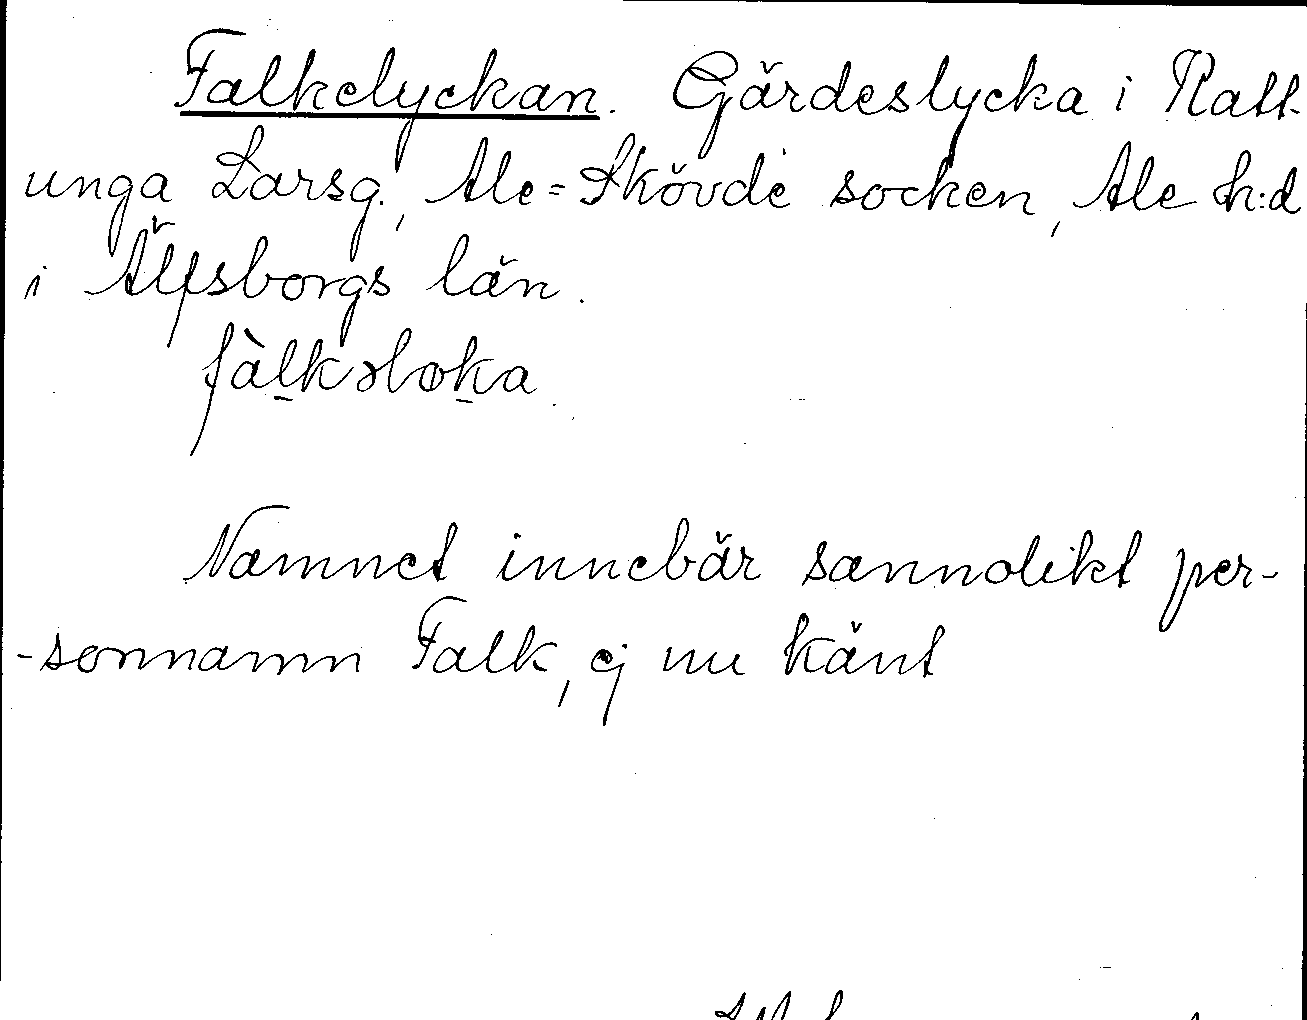 Falkelyckan. Gärdeslycka i Ratt-
unga Larsg., Ale=Skövde socken, Ale h:d
i Älfsborgs län.
fàl̠kəlɷk̠a.
Namnet innebär sannolikt per-
-sonnamn Falk, ej nu känt